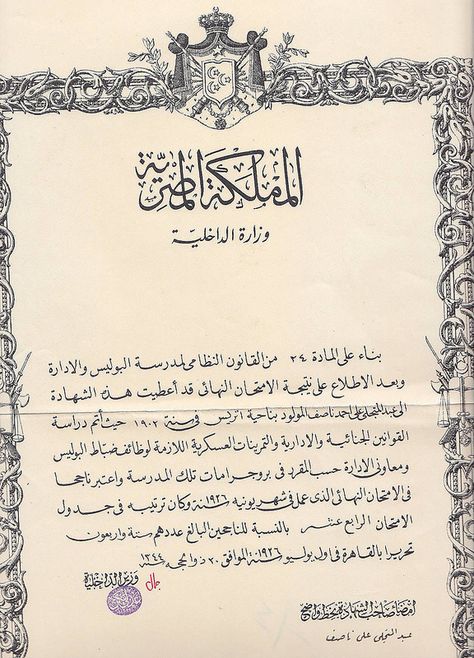 المملكة المصرية
وزارة الداخلية
بناء على المادة ٢٤ من القانون النظامى لمدرسة البوليس والادارة
وبعد الاطلاع على نتيجة الامتحان النهائى قد أعطيت هذه الشهادة
الى عبد المتجلى على أحمد ناصف المولود بناحية اتريس فى سنة ١٩٠٢ حيث أتم دراسة
القوانين الجنائية والادارية والتمرينات العسكرية اللازمة لوظائف ضباط البوليس
ومعاونى الادارة حسب المقرر فى بروجرامات تلك المدرسة واعتبر ناجحا
فى الامتحان النهائى الذى عمل فى شهر يونيه سنة ١٩٢٦ وكان ترتيبه فى جدول
الامتحان الرابع عشر بالنسبة للناجحين البالغ عددهم ستة واربعون
تحريرا بالقاهرة فى اول يوليو سنة ١٩٢٦ الموافق ٢٠ ذو الحجه سنة ١٣٤٤
وزير الداخلية
امضاء صاحب الشهادة بخط واضح
عبد المتجلى على ناصف